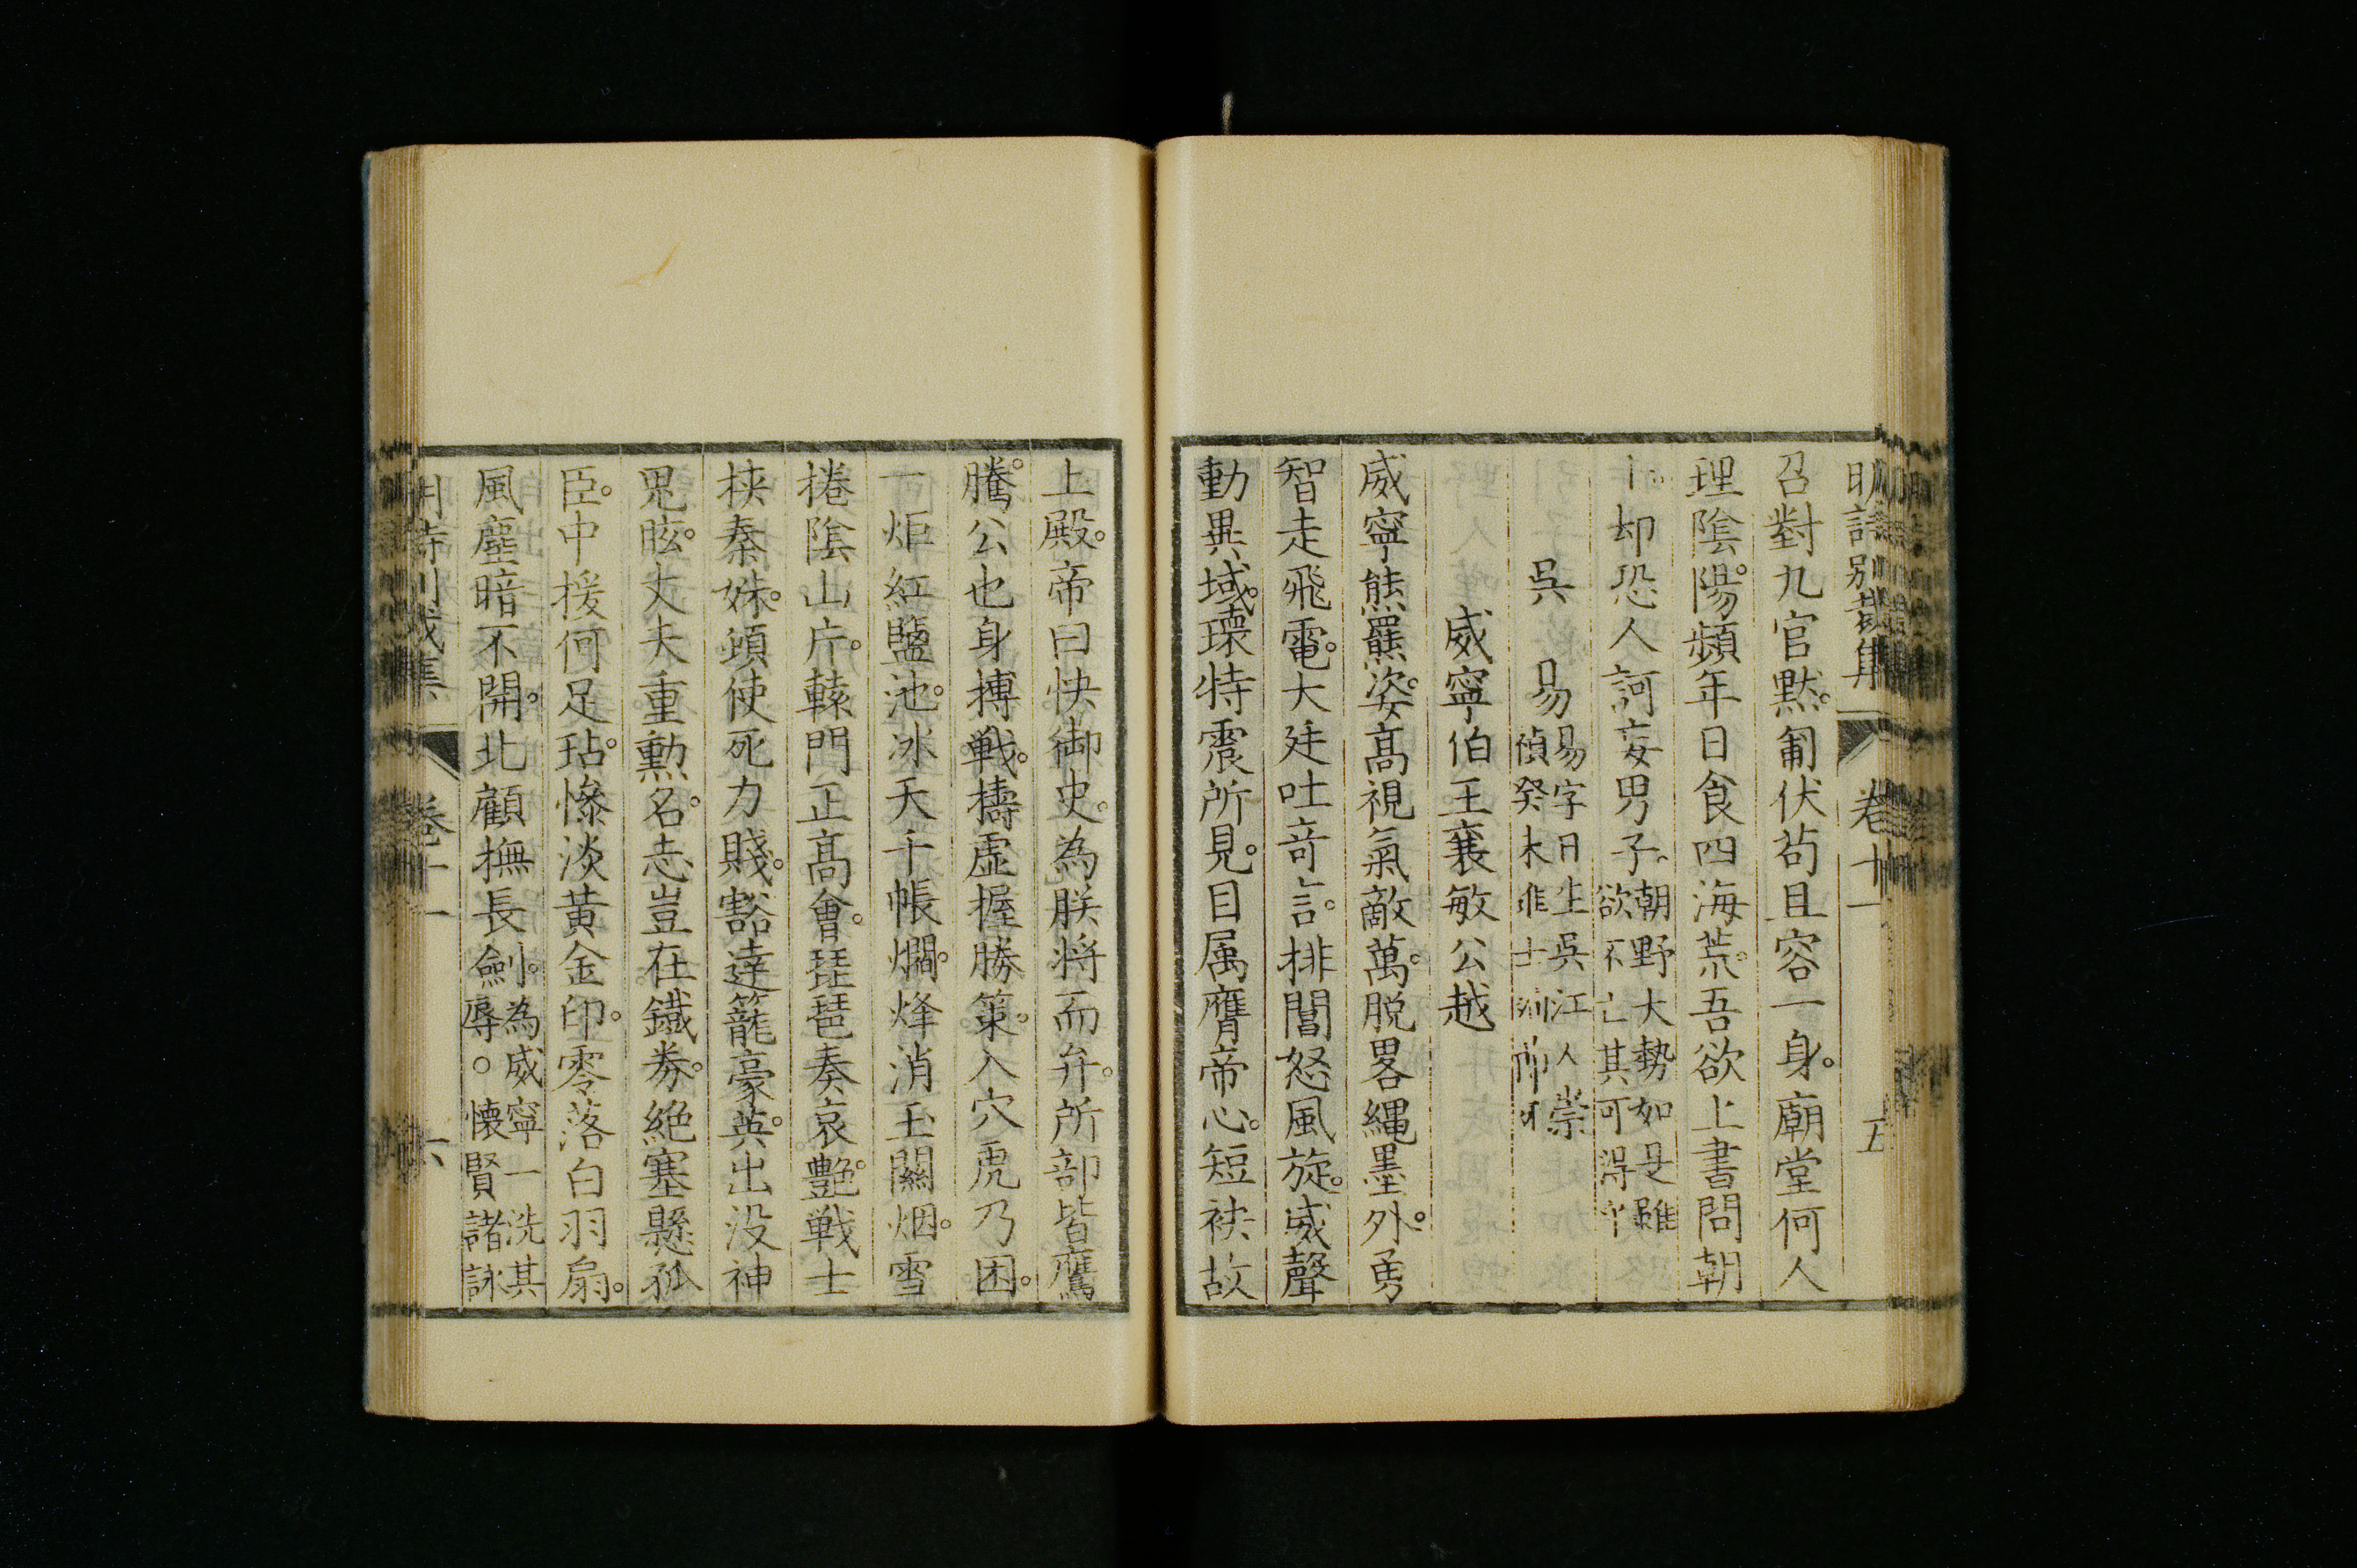 明詩別裁集 卷十一 五
召對九官黙。匍伏苟且容一身。廟堂何人
理隂陽。頻年日食四海荒。吾欲上書問朝
却恐人訶妄男子。朝野大勢如是雖
欲不亡其可得乎
吳易 易字日生吳江人崇
禎癸未進士
威寧伯王襄敏公越
威寧熊羆姿。高視氣敵萬。脱畧繩墨外。勇
智走飛電。大廷吐竒言。排閶怒風旋。威聲
動異域。瓌特震所見。目属膺帝心。短袂故
上殿。帝曰快御史。為朕将而弁。所部皆鷹
騰。公也身搏戰。擣虛握勝筞。入穴虎乃困。
一炬紅鹽池。冰天千帳爛。烽消玉關烟。雪
捲隂山片。轅門正高會。琵琶奏哀艷。戰士
挾秦姝。頭使死力賤。豁達籠豪英。出没神
鬼眩。丈夫重勳名。志豈在鐵券。絶塞懸孤
臣。中援何足玷。慘淡黃金印。零落白羽扇。
風塵暗不開。北顧撫長劍。為威寧一洗其
辱。懐賢諸詠
明詩別裁集 卷十一 六